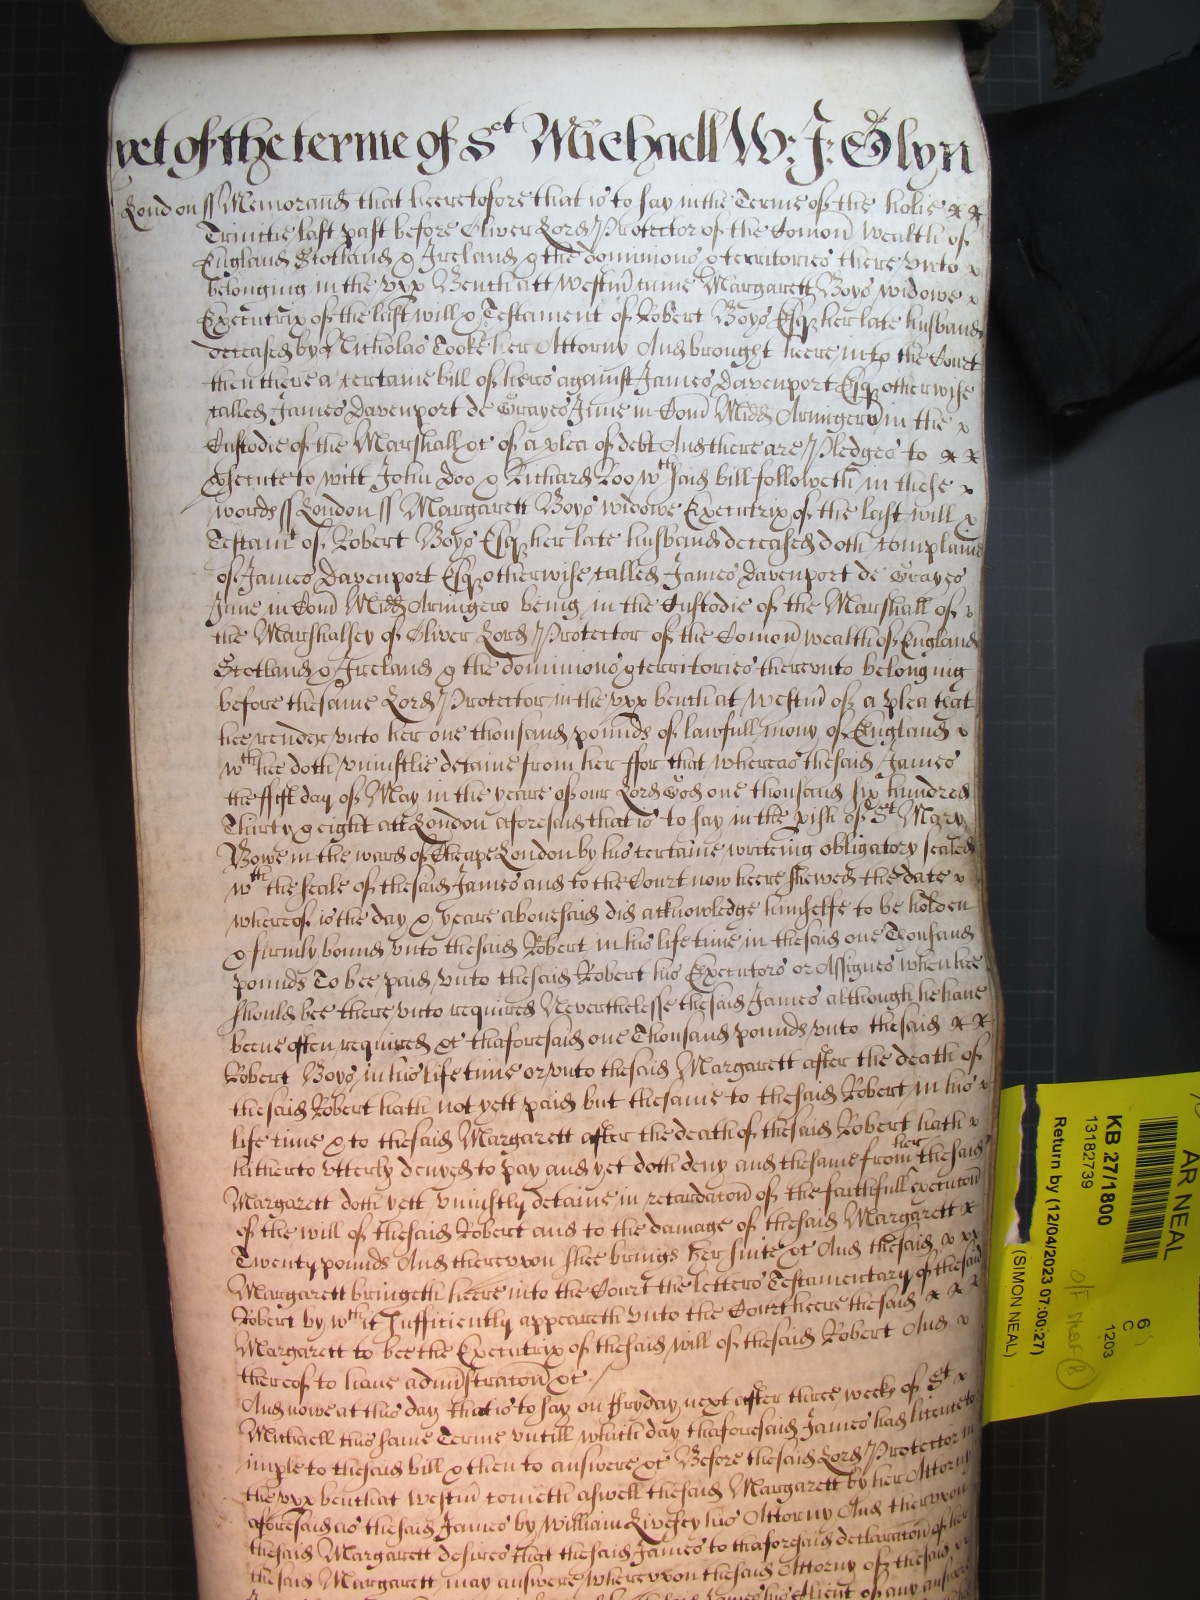 yet of the terme of Sct Michaell W: J: Glyn
London ss Memorand that heeretofore that is to say in the Terme of the holie
Trinitie last past before Oliver Lord Protector of the Comon wealth of
England Scotland & Ireland & the dominions & territories there unto
belonging in the upp Bench att Westm came Margarett Boys widowe
Executrix of the last will & Testament of Robert Boys Esqr her late husband
deceased by Nicholas Cooke her Attorny And brought heere into the Court
then there a certaine bill of hers against James Davenport Esqr otherwise
called James Davenport de Grayes Inne in Com Midd Armigero in the
Custodie of the Marshall &c of a plea of debt And there are Pledges to
prsecute to witt John Doo & Richard Roo wch said bill followeth in these
words ss London ss Margarett Boys widowe Executrix of the last will &
Testamt of Robert Boys Esqr her late husband deceased doth complaine
of James Davenport Esqr otherwise called James Davenport de Grayes
Inne in Com Midd Armigero being in the Custodie of the Marshall of
the Marshalsey of Oliver Lord Protector of the Comon wealth of England
Scotland & Ireland & the dominions & territories thereunto belonging
before the same Lord Protector in the upp bench at Westm of a plea that
hee render unto her one thousand pounds of lawfull mony of England
wch hee doth uniustlie detaine from her ffor that whereas the said James
the ffirst day of May in the yeare of our Lord God one thousand six hundred
Thirty & eight att London aforesaid that is to say in the pish of Sct Mary
Bowe in the ward of Cheape London by his certaine writeing obligatory sealed
wth the seale of the said James and to the Court now heere shewed the date
whereof is the day & yeare abovesaid did acknowledge himselfe to be holden
& firmly bound unto the said Robert in his life time in the said one Thousand
pounds To bee paid unto the said Robert his Executors or Assignes when hee
should bee there unto required Neverthelesse the said James although he have
beene often required &c thaforesaid one Thousand pounds unto the said
Robert Boys in his life time or unto the said Margarett after the death of
the said Robert hath not yett paid but the same to the said Robert in his
life time & to the said Margarett after the death of the said Robert hath
hitherto utterly denyed to pay and yet doth deny and the same from her the said
Margarett doth yett uniustly detaine in retardaton of the faithfull execution
of the will of the said Robert and to the damage of the said Margarett
Twenty pounds And thereupon shee brings her suite &c And the said
Margarett bringeth heere into the Court the letters Testamentary of the said
Robert by wch it sufficiently appeareth unto the Court heere the said
Margarett to bee the Executrix of the said will of the said Robert And
thereof to have administraton &c
And nowe at this day that is to say on ffryday next after three weeks of Sct
Michaell this same Terme untill which day thaforesaid James had licence to
imple to the said bill & then to answere &c Before the said Lord Protector in
the upp bench at Westm cometh aswell the said Margarett by her Attorny
aforesaid as the said James by William Livesey his Attorny And thereupon
the said Margarett desires that the said James to thaforesaid declaraton of her
the said Margarett may answere whereupon the said Attorny of the said
AR NEAL
KB 27/1800
13182739
Return by (12/04/2023 07:00:27)
(SIMON NEAL)
6
C
1203